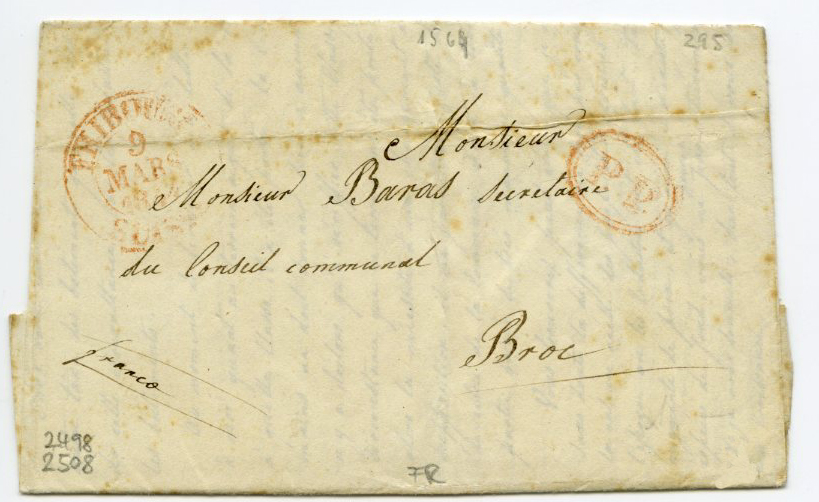 1564
295
FRIBOURG
9
MARS
SUISSE
P.P.
Monsieur
Monsieur Baras Secretaire
du Conseil communal
Broc
Franco
2498
2508
FR